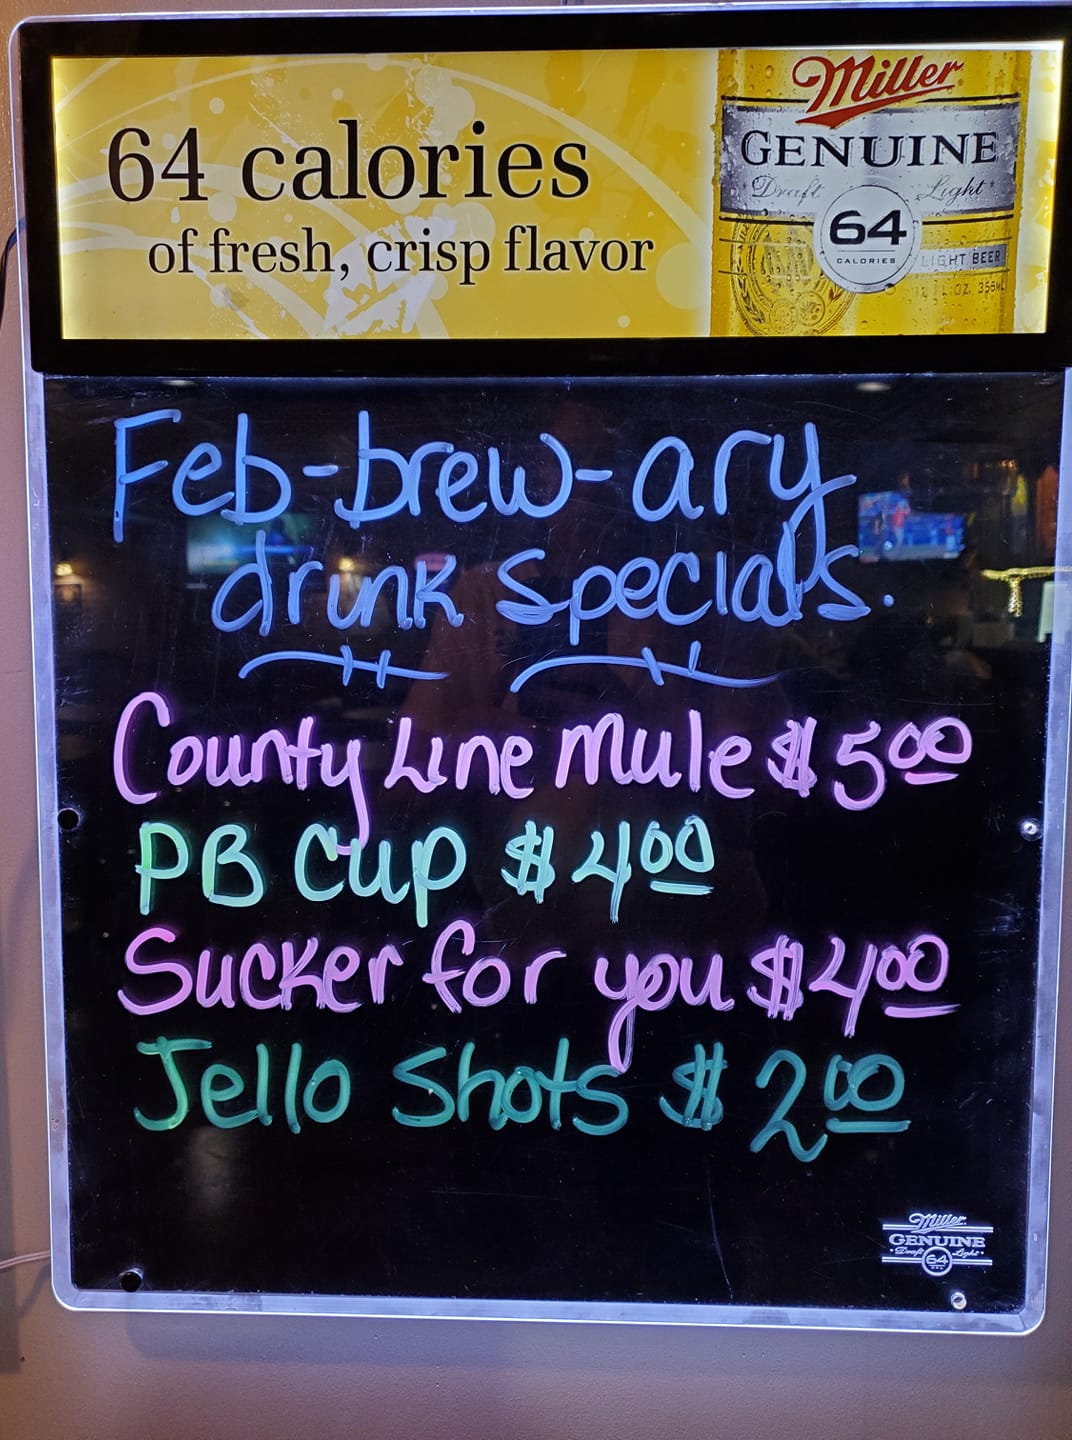 Miller
GENUINE
Draft Light
64
CALORIES
LIGHT BEER
64 calories
of fresh, crisp flavor
Feb-brew-ary
drink specials.
County Line Mule $5.00
PB Cup $4.00
Sucker for you $4.00
Jello Shots $2.00
Miller
GENUINE
Draft Light
64